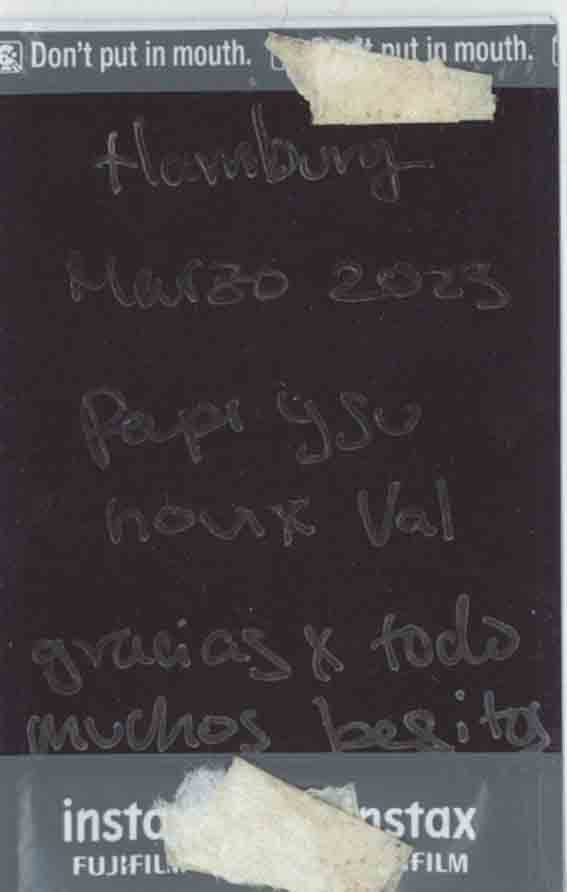 Don't put in mouth. Don't put in mouth.
Hamburg
Marzo 2023
Papi y su
Val
gracias x todo
muchos besitos
instax instax
FUJIFILM FUJIFILM